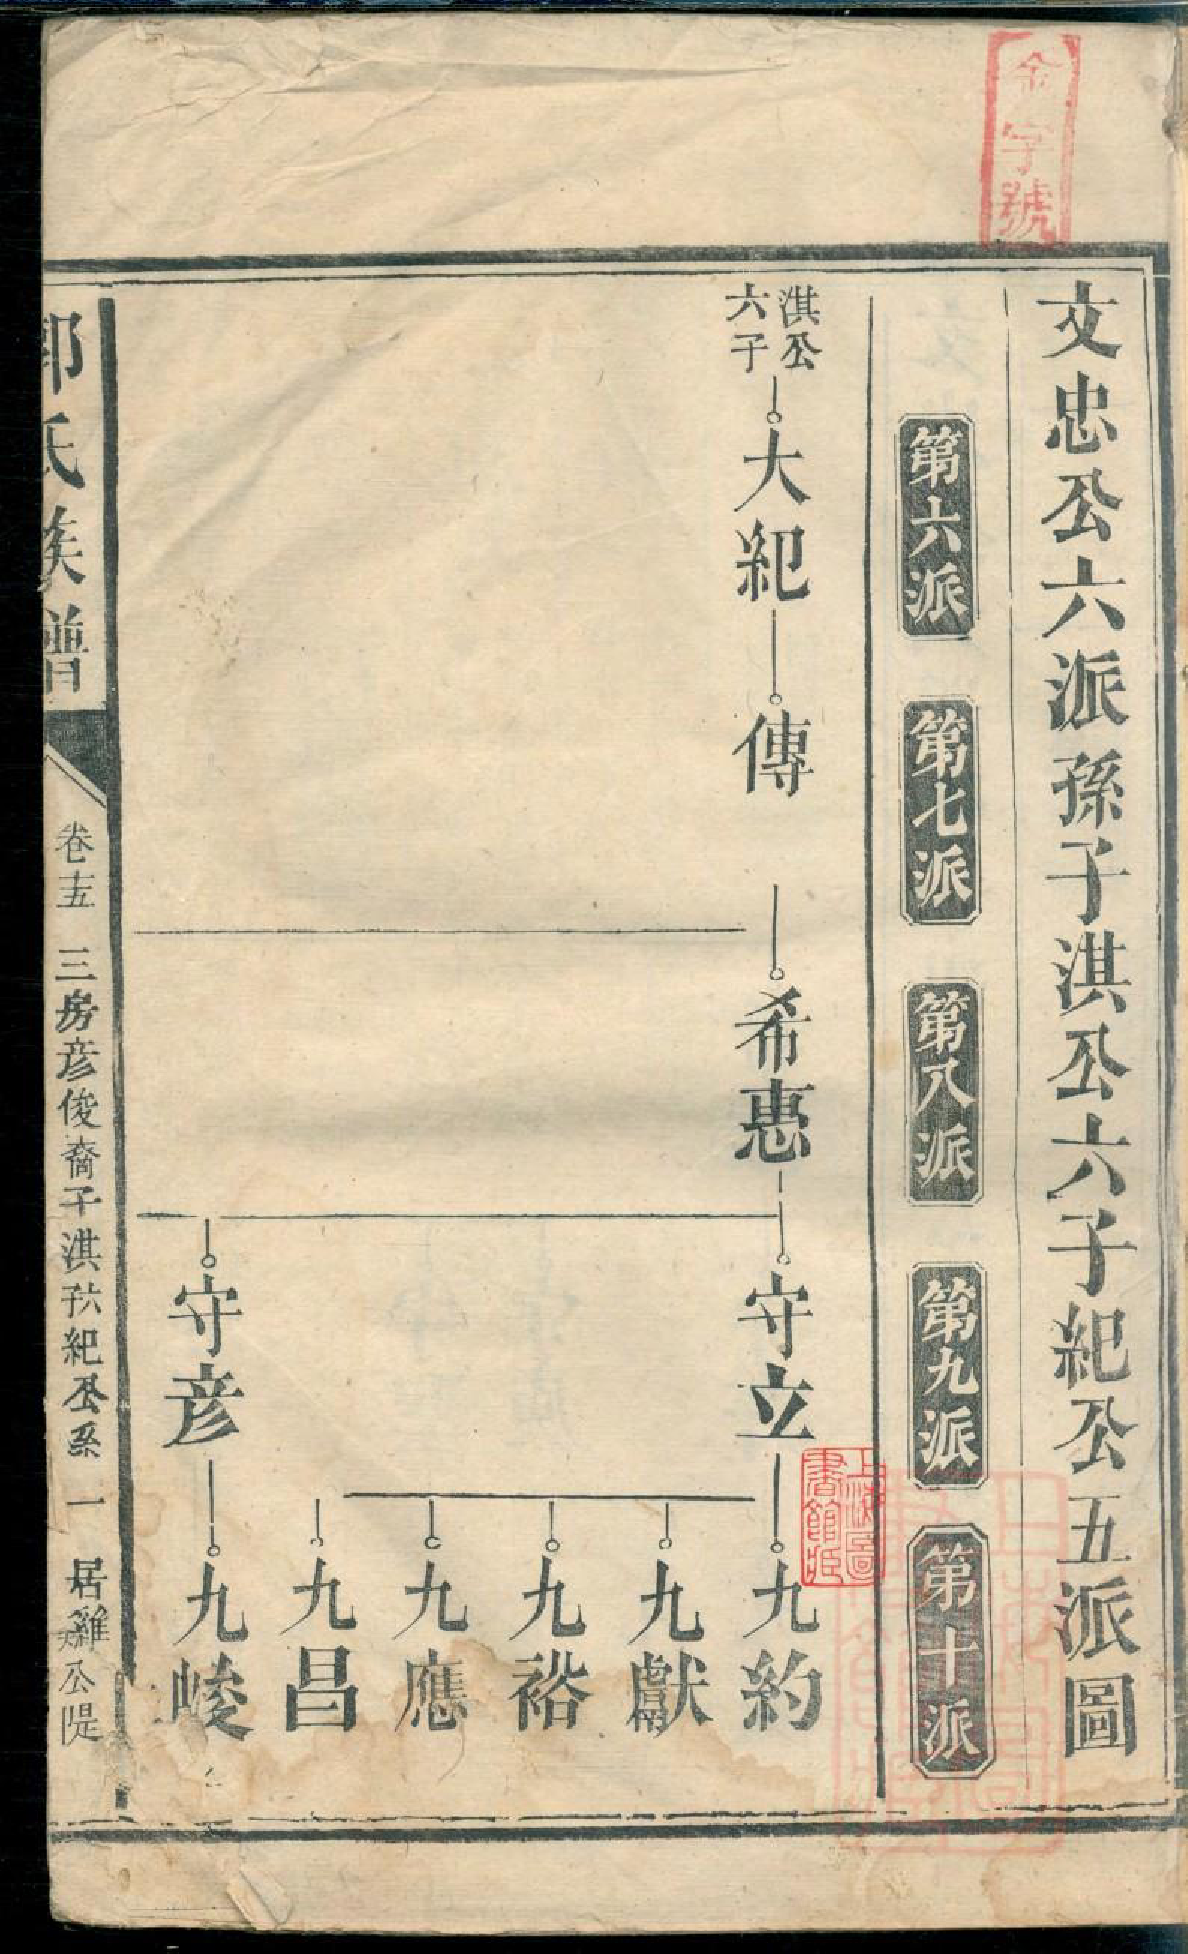 金字號
文忠公六派孫子淇公六子紀公五派圖
第六派
第七派
第八派
第九派
第十派
淇公
六子
大紀
傳
希惠
守立
守彥
九約
九獻
九裕
九應
九昌
九峻
上海圖
書館藏
氏族譜
卷十五
三房彥俊裔子淇
紀公系
一
居雞
公隄